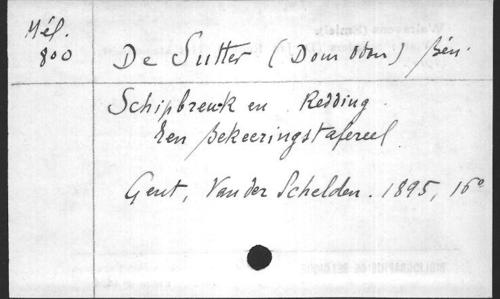 Mél.
800
De Sutter (Dom Odon) Bén.
Schipbreuk en Redding.
Een Bekeeringstafereel
Gent, Van der Schelden. 1895, 16°